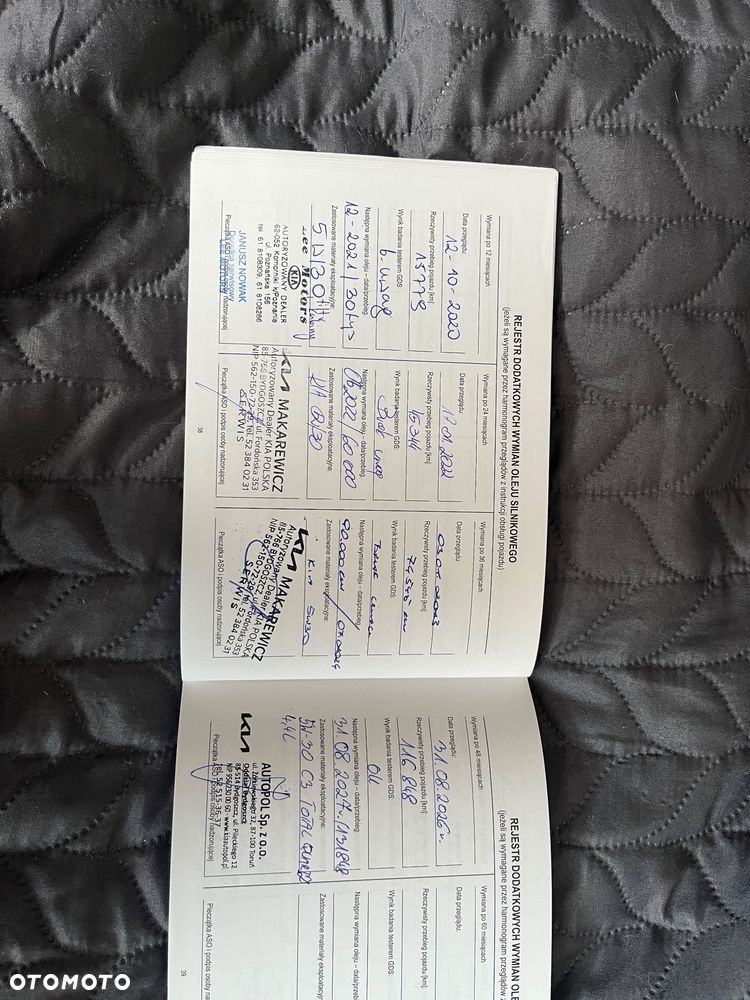 REJESTR DODATKOWYCH WYMIAN OLEJU SILNIKOWEGO
(jeżeli są wymagane przez harmonogram przeglądów z instrukcji obsługi pojazdu)
Wymiana po 12 miesiącach
Data przeglądu:
12-10-2020
Rzeczywisty przebieg pojazdu [km]:
15779
Wynik badania testerem GDS:
b. uwag
Następna wymiana oleju – data/przebieg:
12-2021/30tys
Zastosowane materiały eksploatacyjne:
5W30
Lee Motors
KIA
AUTORYZOWANY DEALER
62-052 Komorniki k/Poznania
ul. Poznańska 156
tel. 61 8108309, 61 8108286
JANUSZ NOWAK
Doradca serwisowy
LEE MOTORS
Pieczątka ASO i podpis osoby nadzorującej
Wymiana po 24 miesiącach
Data przeglądu:
Rzeczywisty przebieg pojazdu [km]:
45344
Wynik badania testerem GDS:
Brak uwag
Następna wymiana oleju – data/przebieg:
/60 000
Zastosowane materiały eksploatacyjne:
KIA
KIA MAKAREWICZ
Autoryzowany Dealer KIA POLSKA
85-766 BYDGOSZCZ, ul. Fordońska 353
NIP 562-150-72-79, tel. 52 384 02 31
SERWIS
Pieczątka ASO i podpis osoby nadzorującej
38
Wymiana po 36 miesiącach
Data przeglądu:
Rzeczywisty przebieg pojazdu [km]:
Wynik badania testerem GDS:
Następna wymiana oleju – data/przebieg:
90.000 km / 07.2024
Zastosowane materiały eksploatacyjne:
KIA 5W30
KIA MAKAREWICZ
Autoryzowany Dealer KIA POLSKA
85-766 BYDGOSZCZ, ul. Fordońska 353
NIP 562-150-72-79, tel. 52 384 02 31
SERWIS
Pieczątka ASO i podpis osoby nadzorującej
REJESTR DODATKOWYCH WYMIAN OLE
(jeżeli są wymagane przez harmonogram przeglądów z
Wymiana po 48 miesiącach
Data przeglądu:
31.08.2026r.
Rzeczywisty przebieg pojazdu [km]:
116 848
Wynik badania testerem GDS:
OK
Następna wymiana oleju – data/przebieg:
31.08.2027r. /131848
Zastosowane materiały eksploatacyjne:
5W30 C3 TOTAL
4,4L
KIA AUTOPOL Sp. z o.o.
ul. Żółkiewskiego 32, 87-100 Toruń
Oddział Bydgoszcz
85-514 Bydgoszcz, ul. Pileckiego 12
tel. 52 515-36-37
Pieczątka ASO i podpis osoby nadzorującej
Wymiana po 60 miesiącach
Data przeglądu:
Rzeczywisty przebieg pojazdu [km]:
Wynik badania testerem GDS:
Następna wymiana oleju – data/przebieg:
Zastosowane materiały eksploatacyjne:
Pieczątka ASO i podpis osoby nadzorującej
39
OTOMOTO